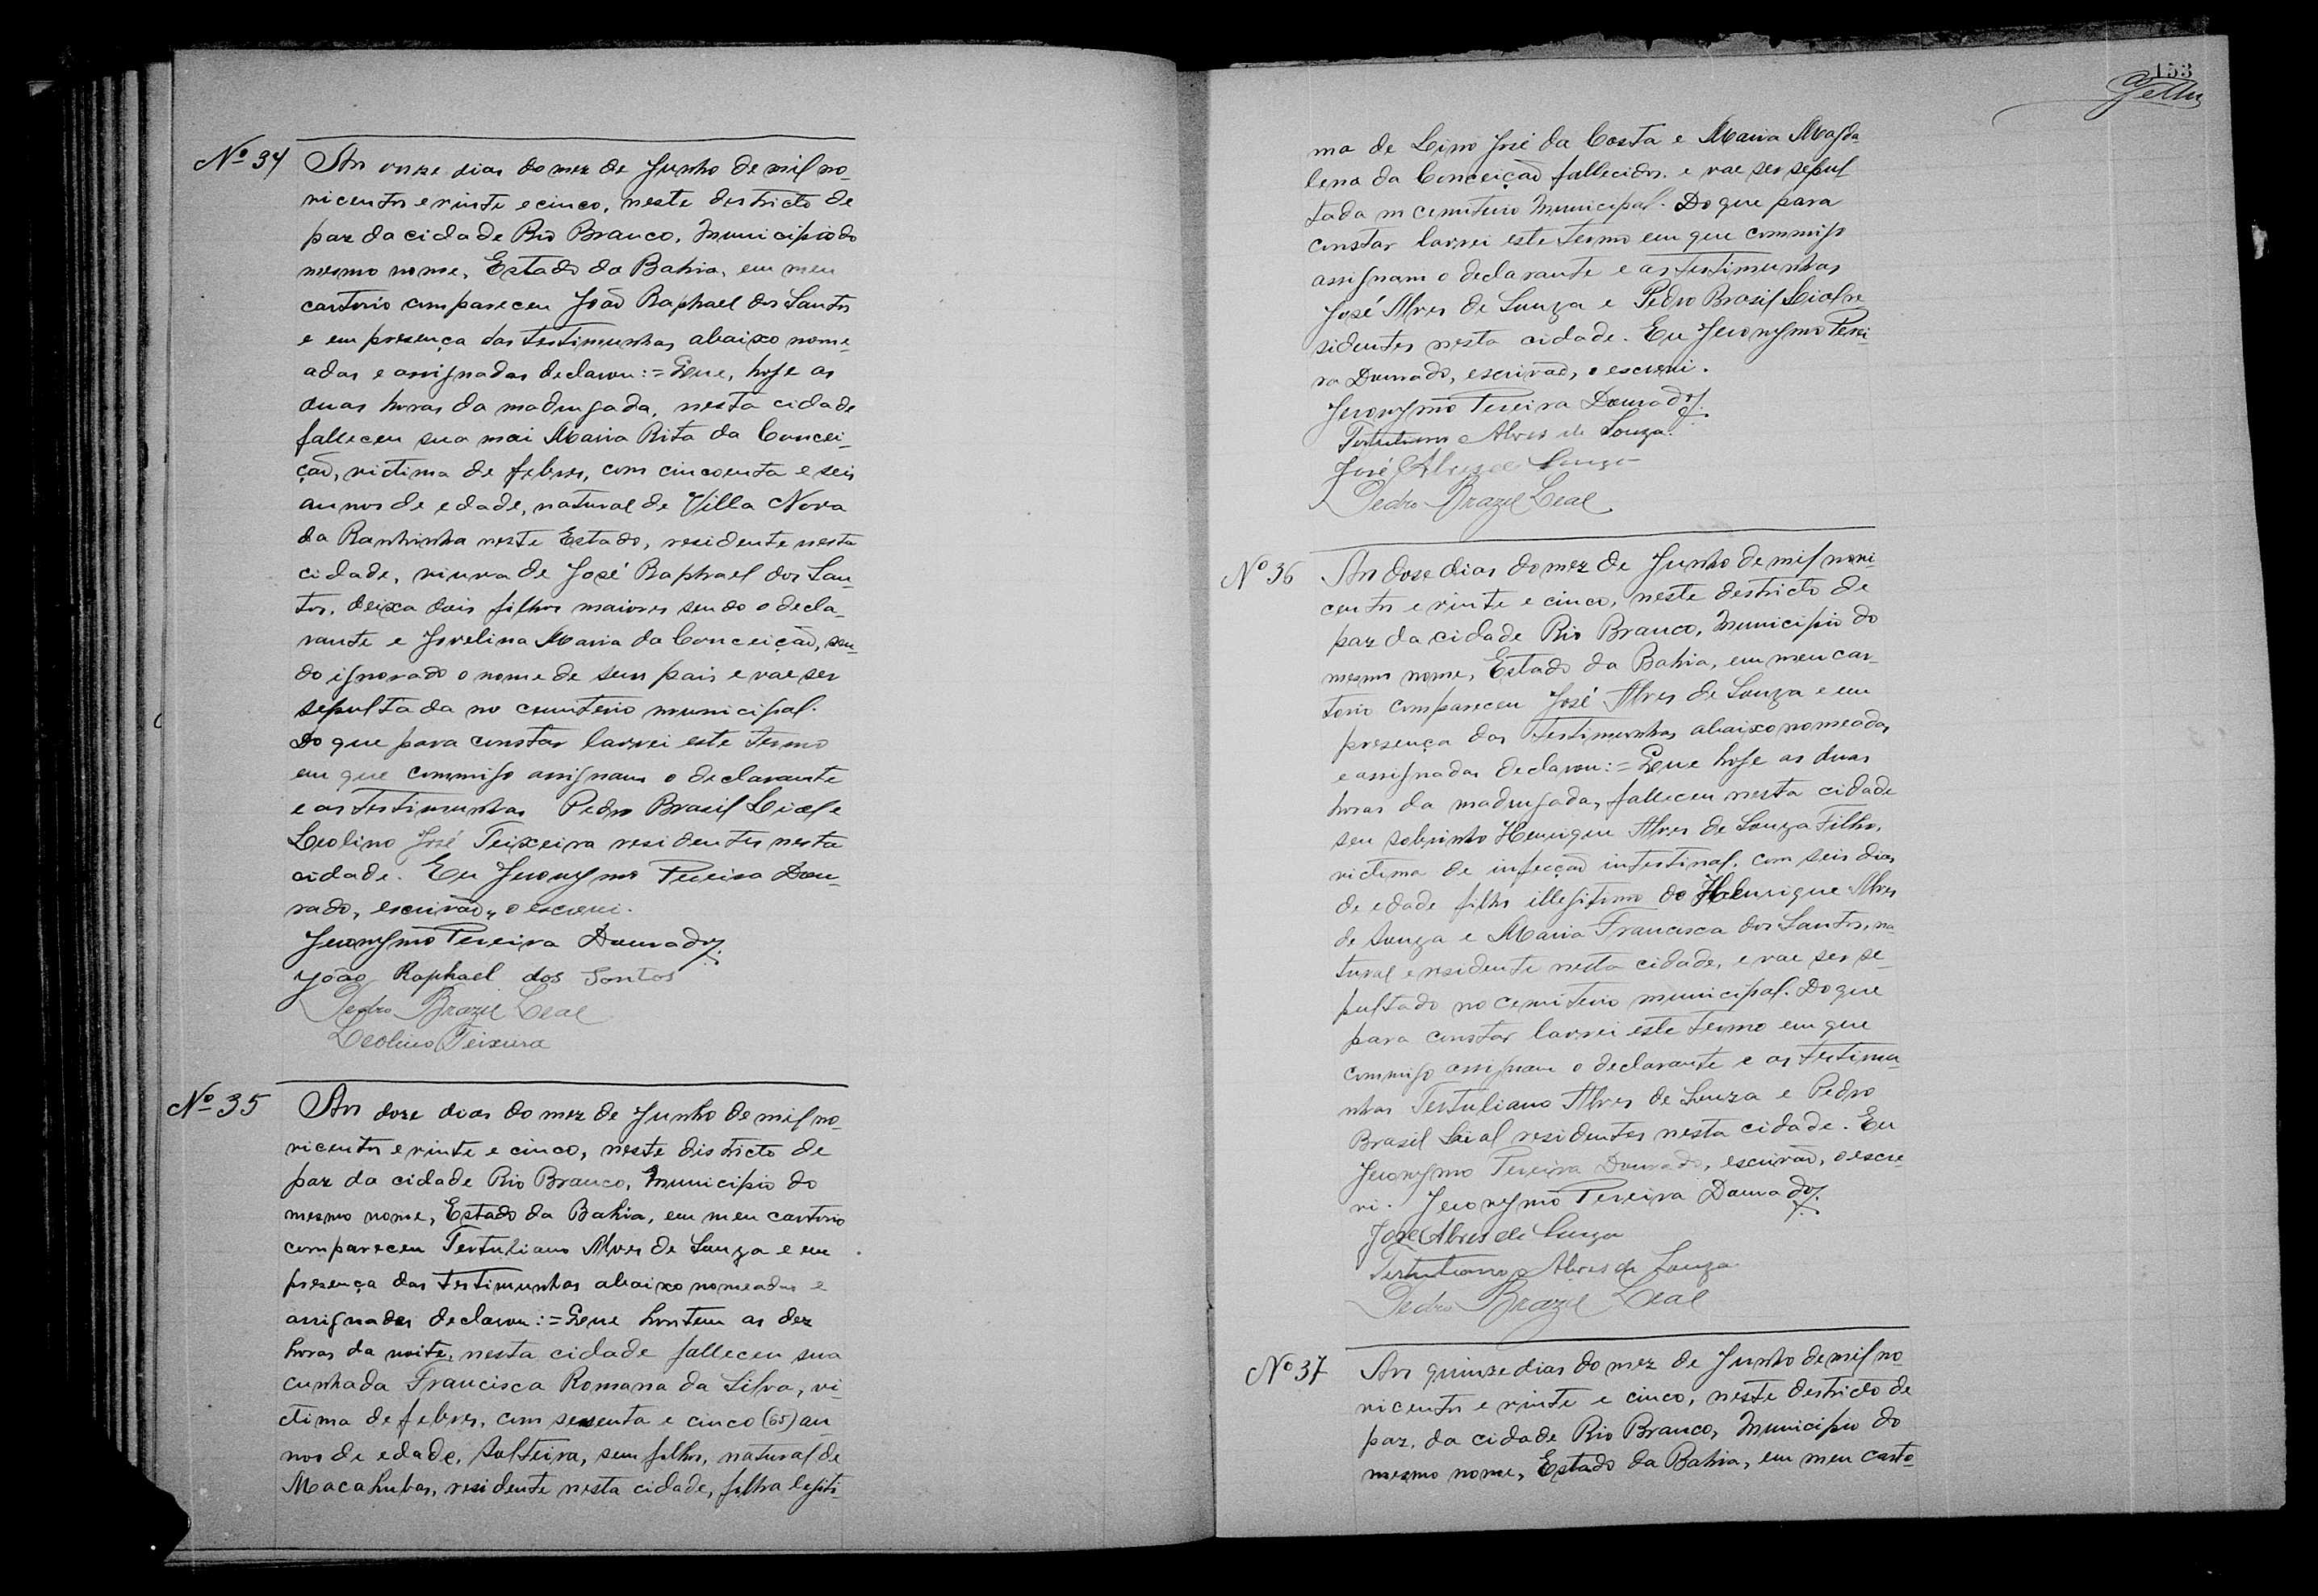 Nº 34
Aos onze dias do mez de Junho de mil no-
vicentos e vinte e cinco, neste destricto de
paz da cidade Rio Branco, Municipio do
mesmo nome, Estado da Bahia, em meu
cartorio compareceu João Raphael dos Santos
e em presença das testimunhas abaixo nome-
adas e assignadas declarou:= Que, hoje as
duas horas da madrugada, nesta cidade
falleceu sua mai Maria Rita da Concei-
ção, victima de febres, com cincoenta e seis
annos de edade, natural de Villa Nova
da Ranhinha neste Estado, residente nesta
cidade, viuva de José Raphael dos San-
tos, deixa dois filhos maiores sendo o decla-
rante e Jovelina Maria da Conceição, sen-
do ignorado o nome de seus pais e vae ser
sepultada no cemiterio municipal.
Do que para constar lavrei este termo
em que commigo assignam o declarante
e as testimunhas Pedro Brasil Lial e
Leolino José Teixeira residentes nesta
cidade. Eu Jeronymo Pereira Dou-
rado, escrivão, o escrevi.
Jeronymo Pereira Dourado
João Raphael dos Santos
Pedro Brazil Leal
Leolino Teixeira
Nº 35
Aos doze dias do mez de Junho de mil no-
vicentos e vinte e cinco, neste districto de
paz da cidade Rio Branco, Municipio do
mesmo nome, Estado da Bahia, em meu cartorio
compareceu Tertuliano Alves de Souza e em
presença das testimunhas abaixo nomeadas e
assignadas declarou:= Que hontem as dez
horas da noite, nesta cidade falleceu sua
cunhada Francisca Romana da Silva, vi-
ctima de febres, com sessenta e cinco (65) an-
nos de edade, solteira, sem filhos, natural de
Macahubas, residente nesta cidade, filha legiti-
153
ma de Lino José da Costa e Maria Magda-
lena da Conceição fallecidos. e vae ser sepul-
tada no cemiterio Municipal. Do que para
constar lavrei este termo em que commigo
assignam o declarante e as testimunhas
José Alves de Souza e Pedro Brasil Lial re-
sidentes nesta cidade. Eu Jeronymo Perei-
ra Dourado, escrivão, o escrevi.
Jeronymo Pereira Dourado
Tertuliano Alves de Souza.
José Alves de Souza
Pedro Brazil Leal
Nº 36
Aos dose dias do mez de Junho de mil novi-
centos e vinte e cinco, neste destricto de
paz da cidade Rio Branco, Municipio do
mesmo nome, Estado da Bahia, em meu car-
torio compareceu José Alves de Souza e em
presença das testimunhas abaixo nomeadas
e assignadas declarou:= Que hoje as duas
horas da madrugada, falleceu nesta cidade
seu sobrinho Henrique Alves de Souza Filho,
victima de infecção intestinal, com seis dias
de edade filho illegitimo de Henrique Alves
de Souza e Maria Francisca dos Santos, na-
tural e residente nesta cidade, e vae ser se-
pultado no cemiterio municipal. Do que
para constar lavrei este termo em que
commigo assignam o declarante e as testimu-
nhas Tertuliano Alves de Souza e Pedro
Brasil Lial residentes nesta cidade. Eu
Jeronymo Pereira Dourado, escrivão, o escre-
vi. Jeronymo Pereira Dourado
José Alves de Souza
Tertuliano Alves de Souza
Pedro Brazil Leal
Nº 37
Aos quinze dias do mez de Junho de mil no-
vicentos e vinte e cinco, neste destricto de
paz, da cidade Rio Branco, Municipio do
mesmo nome, Estado da Bahia, em meu carto-